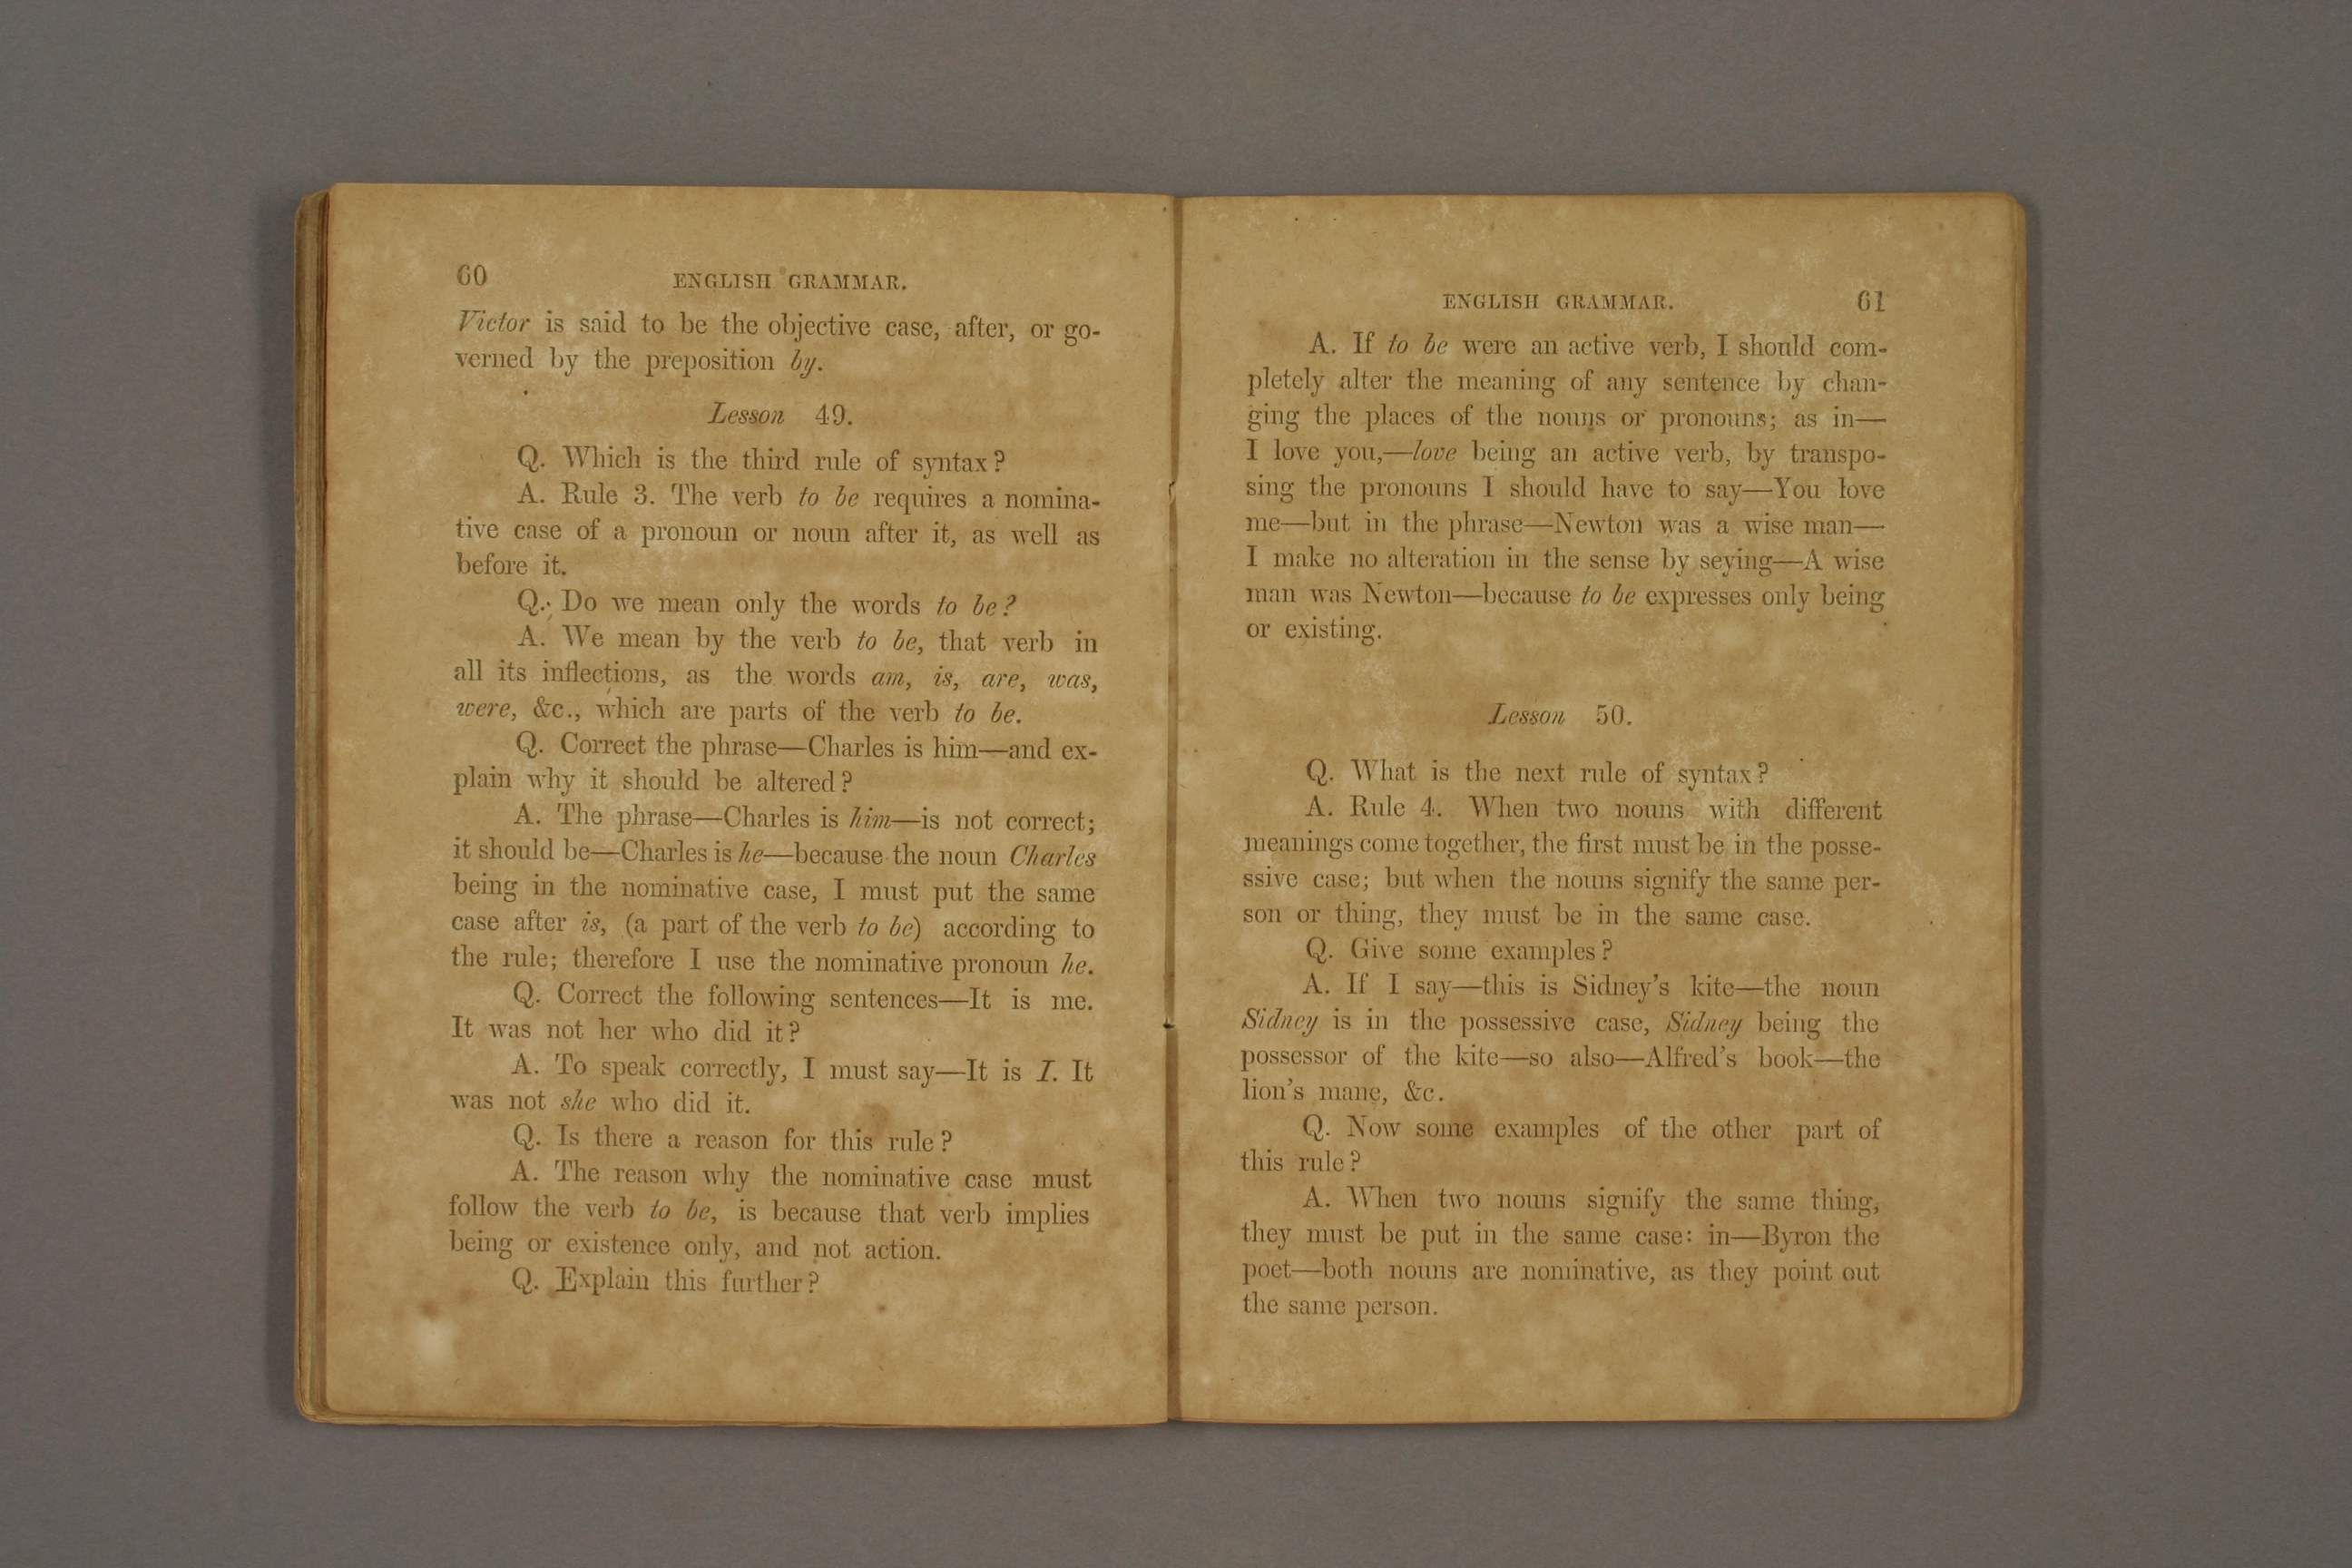 60
ENGLISH GRAMMAR.
Victor is said to be the objective case, after, or go-
verned by the preposition by.
Lesson 49.
Q. Which is the third rule of syntax?
A. Rule 3. The verb to be requires a nomina-
tive case of a pronoun or noun after it, as well as
before it.
Q. Do we mean only the words to be?
A. We mean by the verb to be, that verb in
all its inflections, as the words am, is, are, was,
were, &c., which are parts of the verb to be.
Q. Correct the phrase—Charles is him—and ex-
plain why it should be altered?
A. The phrase—Charles is him—is not correct;
it should be—Charles is he—because the noun Charles
being in the nominative case, I must put the same
case after is, (a part of the verb to be) according to
the rule; therefore I use the nominative pronoun he.
Q. Correct the following sentences—It is me.
It was not her who did it?
A. To speak correctly, I must say—It is I. It
was not she who did it.
Q. Is there a reason for this rule?
A. The reason why the nominative case must
follow the verb to be, is because that verb implies
being or existence only, and not action.
Q. Explain this further?
ENGLISH GRAMMAR.
61
A. If to be were an active verb, I should com-
pletely alter the meaning of any sentence by chan-
ging the places of the nouns or pronouns; as in—
I love you,—love being an active verb, by transpo-
sing the pronouns I should have to say—You love
me—but in the phrase—Newton was a wise man—
I make no alteration in the sense by seying—A wise
man was Newton—because to be expresses only being
or existing.
Lesson 50.
Q. What is the next rule of syntax?
A. Rule 4. When two nouns with different
meanings come together, the first must be in the posse-
ssive case; but when the nouns signify the same per-
son or thing, they must be in the same case.
Q. Give some examples?
A. If I say—this is Sidney's kite—the noun
Sidney is in the possessive case, Sidney being the
possessor of the kite—so also—Alfred's book—the
lion's mane, &c.
Q. Now some examples of the other part of
this rule?
A. When two nouns signify the same thing,
they must be put in the same case: in—Byron the
poet—both nouns are nominative, as they point out
the same person.